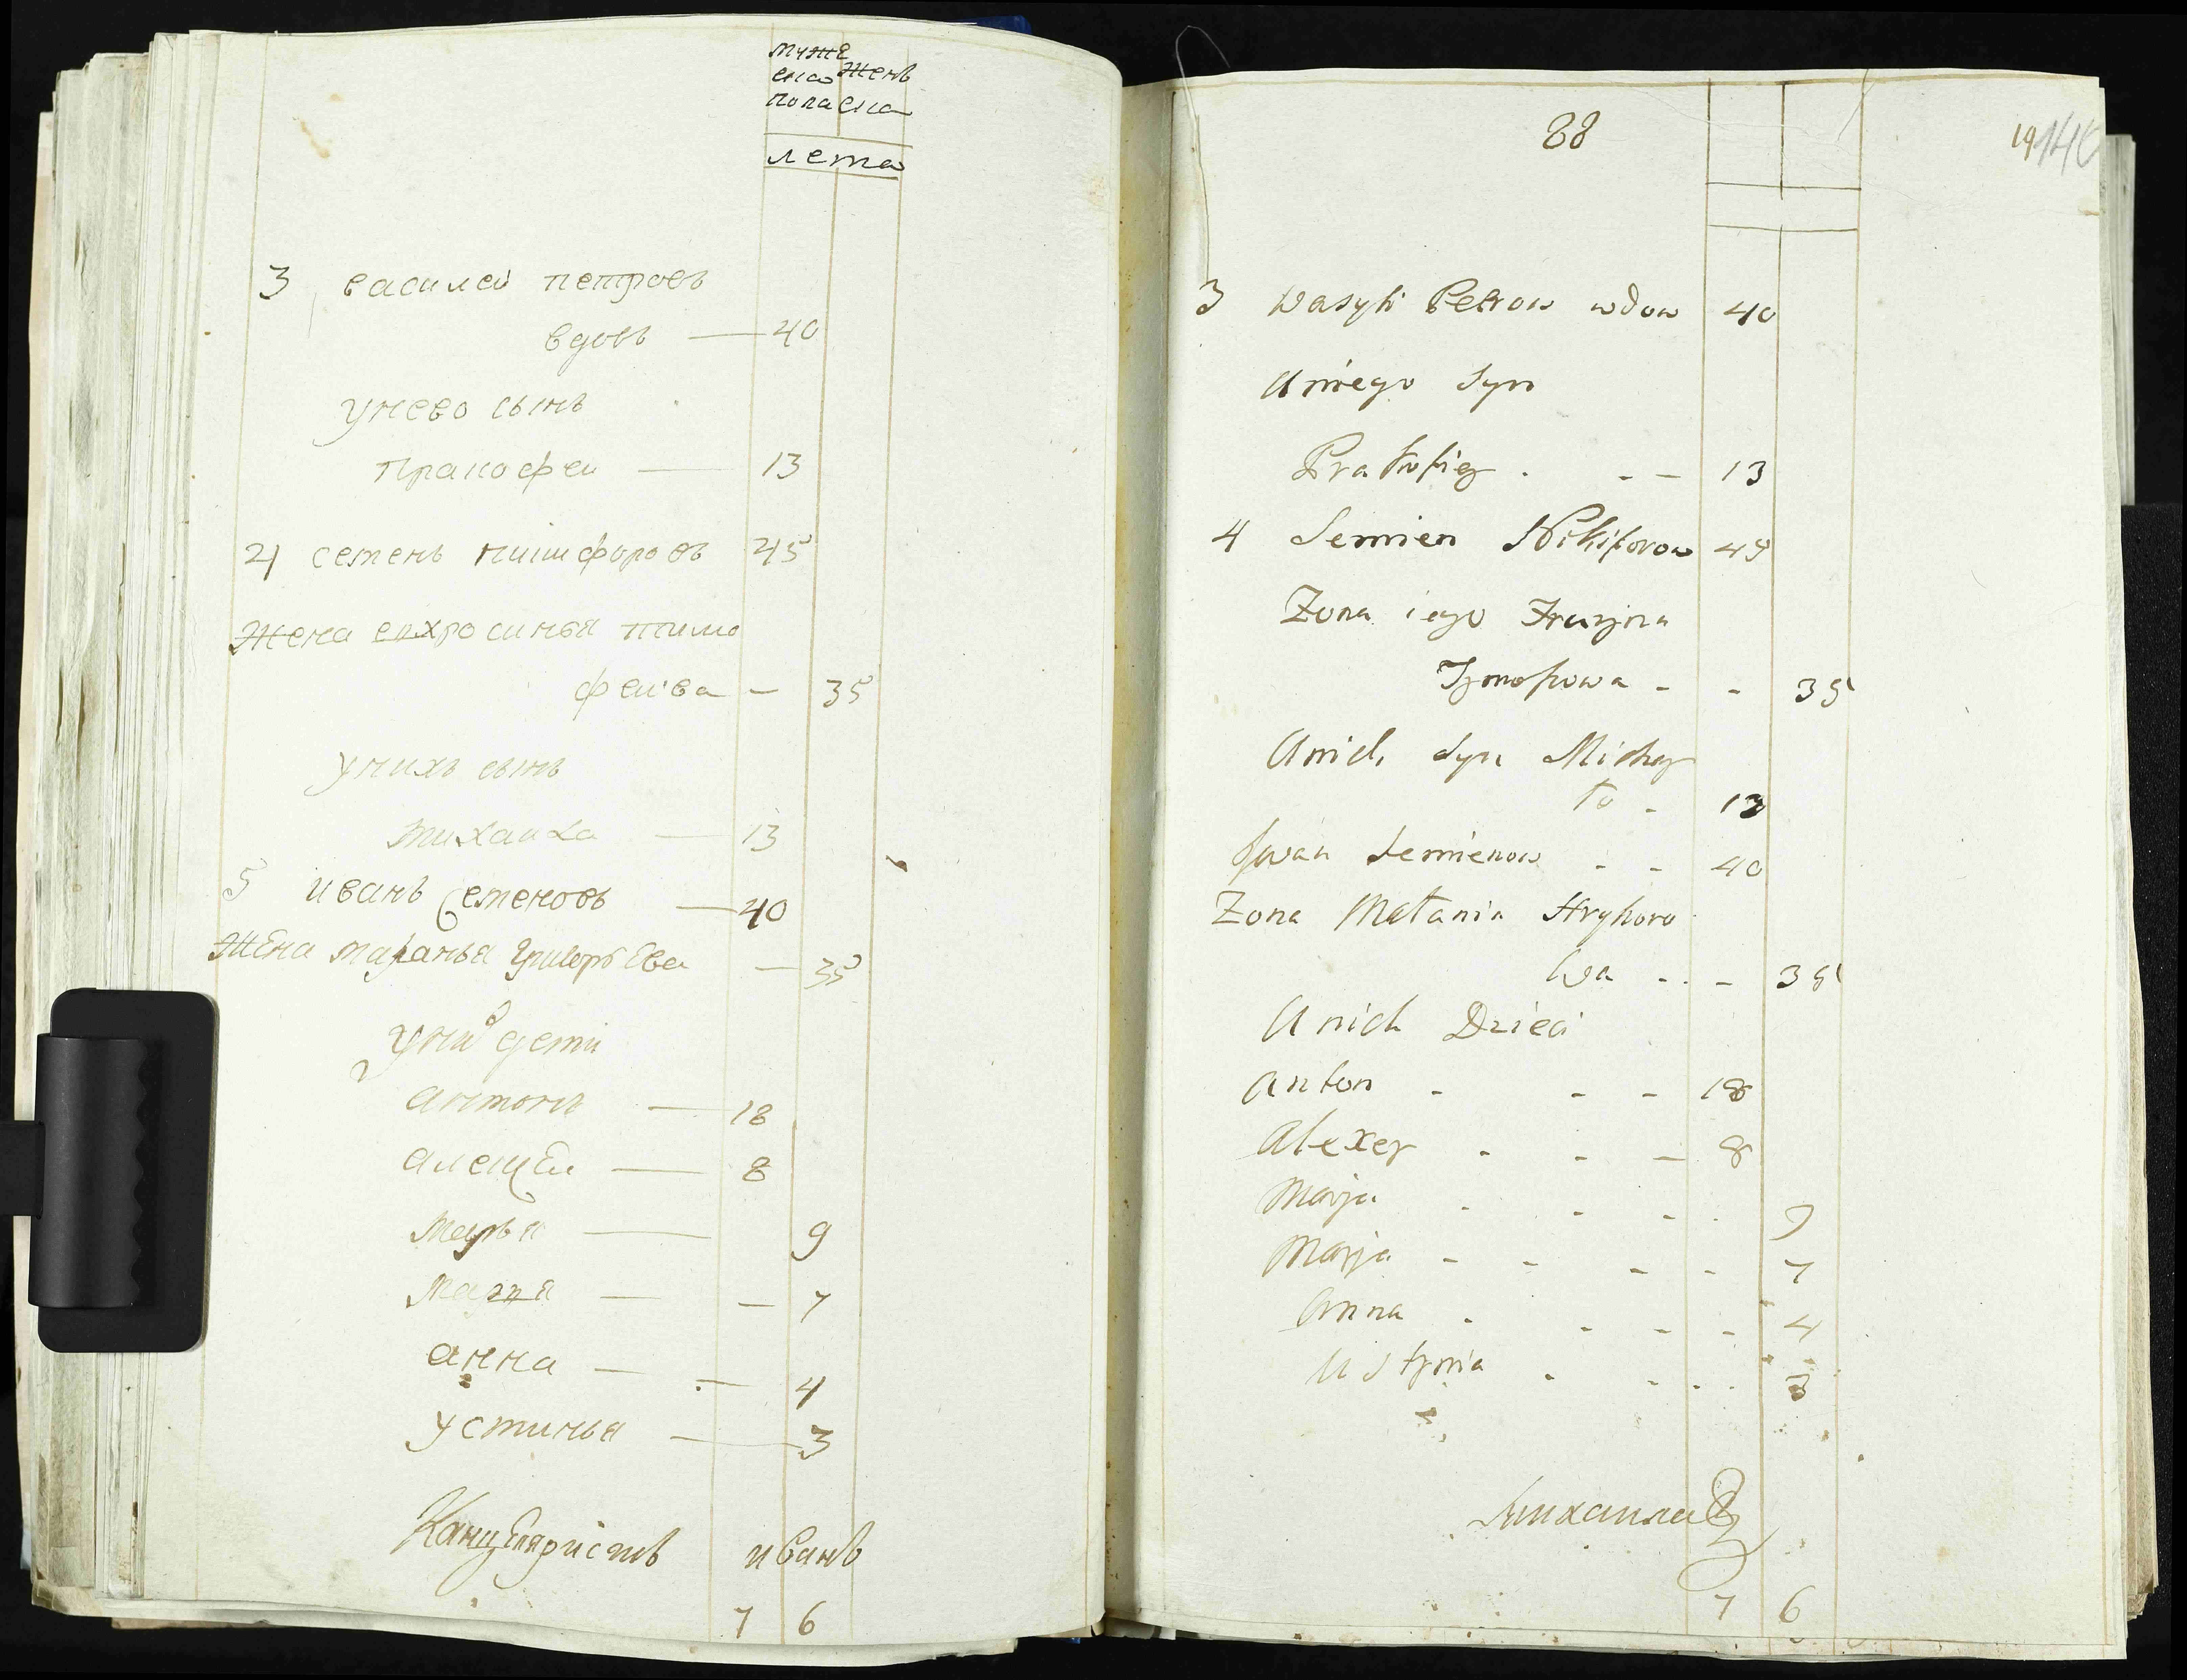 муже
ска Женъ
пола ска
лета
3 василеи петровъ
вдовъ — 40
унево сынъ
пракофеи — 13
4 семенъ никифоровъ 45
Жена епхросинья тимо
феива — 35
унихъ сынъ
михаила — 13
5 иванъ Семеновъ — 40
Жена маланья григорьева — 35
унихъ дети
антонъ — 18
алексеи — 8
марья — 9
марья — — 7
анна — — 4
устинья — 3
Канцеляристъ иванъ
7 6
88
19 140
3 Wasyli Petrow wdow 40
Uniego Syn
Prakofiey . - — 13
4 Semien Nikiforow 45
Zona iego Fruzyna
Tymofiowa - - 35
Unich Syn Michay
ło - 13
Jwan Semienow - - 40
Zona Małania Hryhoro
wa - . - 35
Unich Dzieci
Anton - - - 18
Alexey - - — 8
Marja - - - . 9
Marja - - - - 7
Anna - - - - 4
Ustynia - - - . 3
михаила
7 6